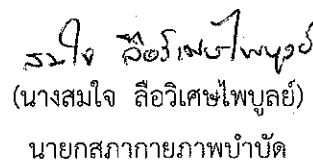 สมใจ ลือวิเศษไพบูลย์
(นางสมใจ ลือวิเศษไพบูลย์)
นายกสภากายภาพบำบัด